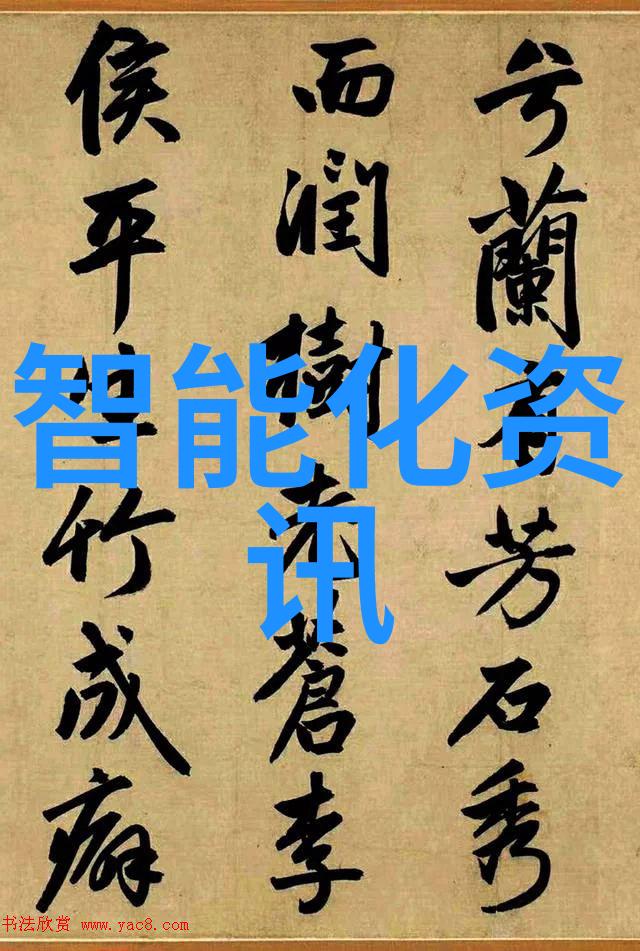 兮蘭有芳石秀
而潤樹老蒼李
侯平生竹成癖
智能化资
讯
书法欣赏 www.yac8.com